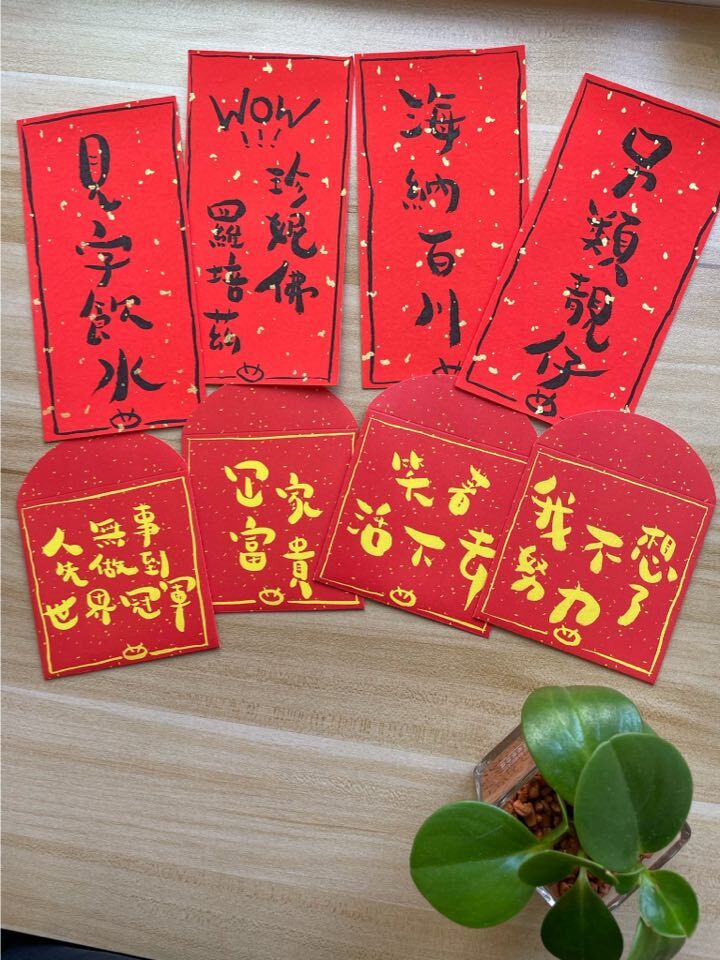 見字飲水
WOW
!!!
珍妮佛
羅培茲
海納百川
另類靚仔
人無事
先做到
世界冠軍
冚家
富貴
笑着
活下去
我不想
努力了